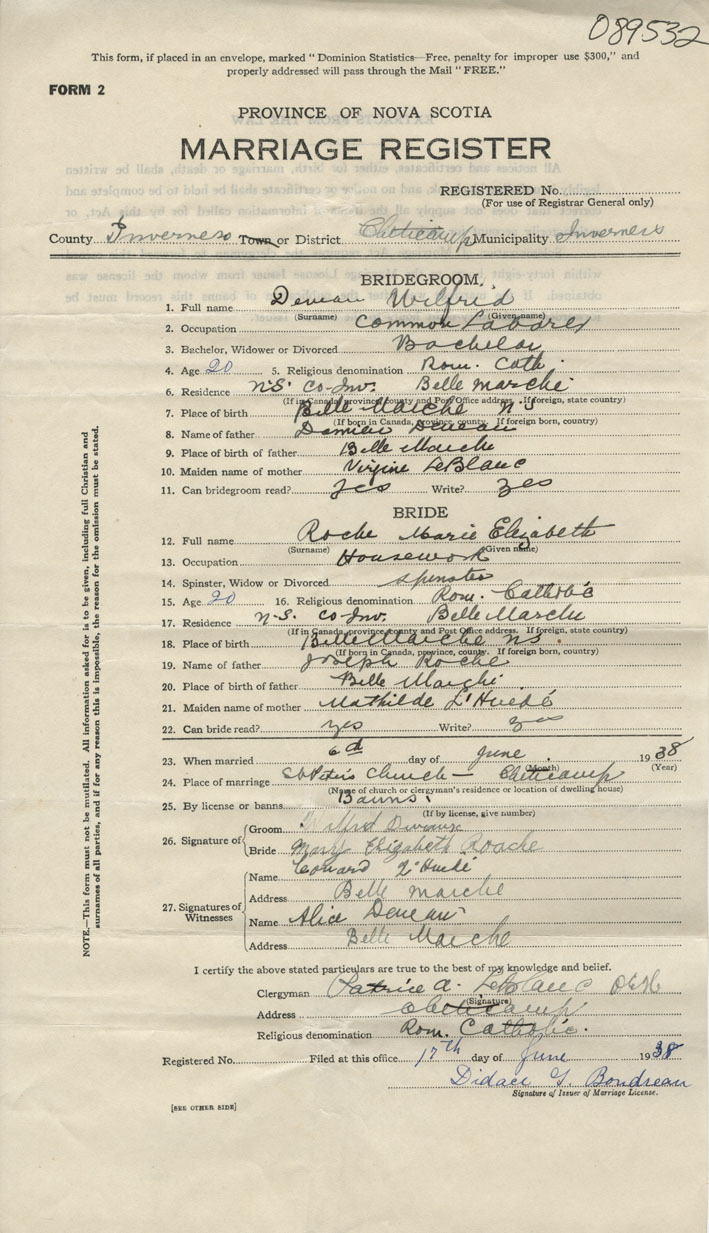 089532
This form, if placed in an envelope, marked "Dominion Statistics—Free, penalty for improper use $300," and
properly addressed will pass through the Mail "FREE."
FORM 2
PROVINCE OF NOVA SCOTIA
MARRIAGE REGISTER
REGISTERED No.
(For use of Registrar General only)
County Inverness Town or District Cheticamp Municipality Inverness
BRIDEGROOM.
1. Full name Deveau Wilfrid
(Surname) (Given name)
2. Occupation Common Laborer
3. Bachelor, Widower or Divorced Bachelor
4. Age 20 5. Religious denomination Rom. Cath.
6. Residence N.S. Co-Inv. Belle Marche
(If in Canada, province, county and Post Office address. If foreign, state country)
7. Place of birth Belle Marche N S
(If born in Canada, province, county. If foreign born, country)
8. Name of father Damien Deveau
9. Place of birth of father Belle Marche
10. Maiden name of mother Virginie LeBlanc
11. Can bridegroom read? yes Write? yes
BRIDE
12. Full name Roche Marie Elizabeth
(Surname) (Given name)
13. Occupation Housework
14. Spinster, Widow or Divorced spinster
15. Age 20 16. Religious denomination Rom. Catholic
17. Residence N.S. Co-Inv. Belle Marche
(If in Canada, province, county and Post Office address. If foreign, state country)
18. Place of birth Belle Marche N S.
(If born in Canada, province, county. If foreign born, country)
19. Name of father Joseph Roche
20. Place of birth of father Belle Marche
21. Maiden name of mother Mathilde L'Huedé
22. Can bride read? yes Write? yes
23. When married 6th day of June 1938
(Month) (Year)
24. Place of marriage St Peters Church — Cheticamp
(Name of church or clergyman's residence or location of dwelling house)
25. By license or banns Banns.
(If by license, give number)
26. Signature of
Groom Wilfred
Bride Mary Elizabeth Roache
27. Signatures of Witnesses
Name L'Huedé
Address Belle Marche
Name Alice Deveau
Address Belle Marche
I certify the above stated particulars are true to the best of my knowledge and belief.
Clergyman Patrice A. LeBlanc
(Signature)
Address Cheticamp
Religious denomination Rom. Catholic.
Registered No. Filed at this office 17th day of June 1938
G. Boudreau
Signature of Issuer of Marriage License.
[SEE OTHER SIDE]
NOTE.—This form must not be mutilated. All information asked for is to be given, including full Christian and
surnames of all parties, and if for any reason this is impossible, the reason for the omission must be stated.